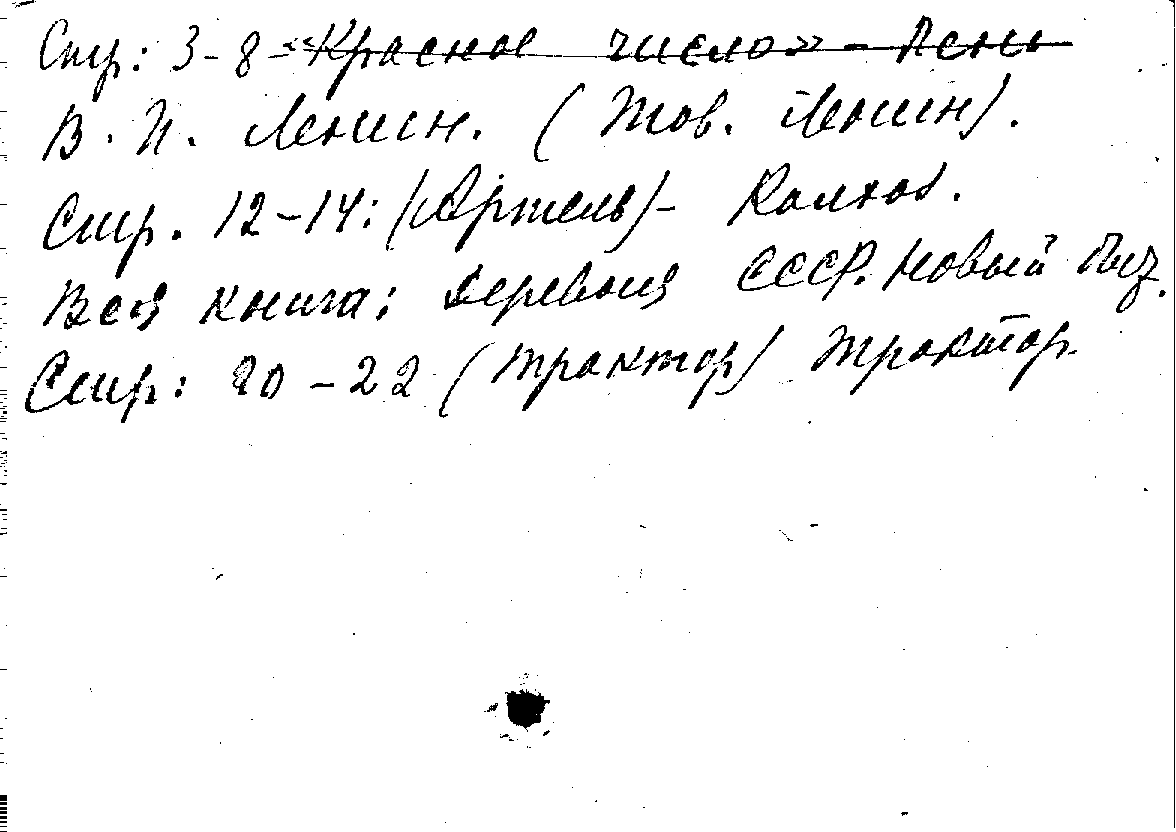 Стр: 3-8-«Красное число» - Лени
В. И. Ленин. (Тов. Ленин).
Стр. 12-14: (Артель) - Колхоз.
Вся книга: Деревня СССР. Новый быт.
Стр: 20-22 (Трактор) Трактор.